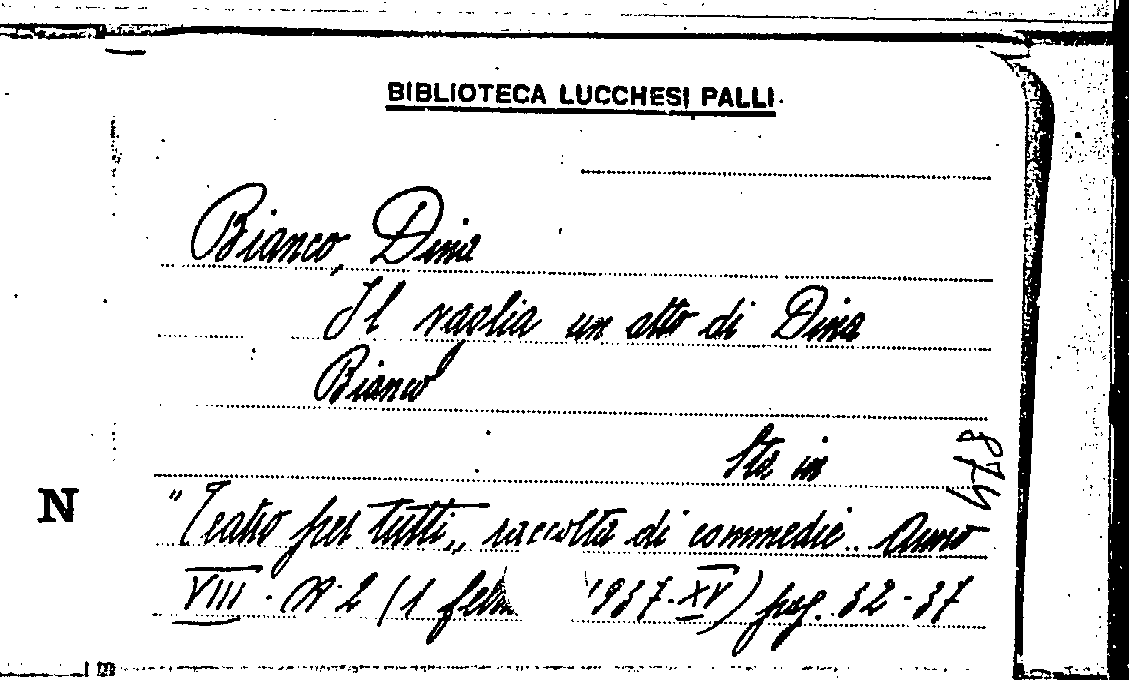 BIBLIOTECA LUCCHESI PALLI
Bianco, Dina
Il vaglia un atto di Dina
Bianco
Sta in
"Teatro per tutti„ raccolta di commedie. Anno
VIII. N. 2 (1 febb 1937-XV) pag. 32-37
N